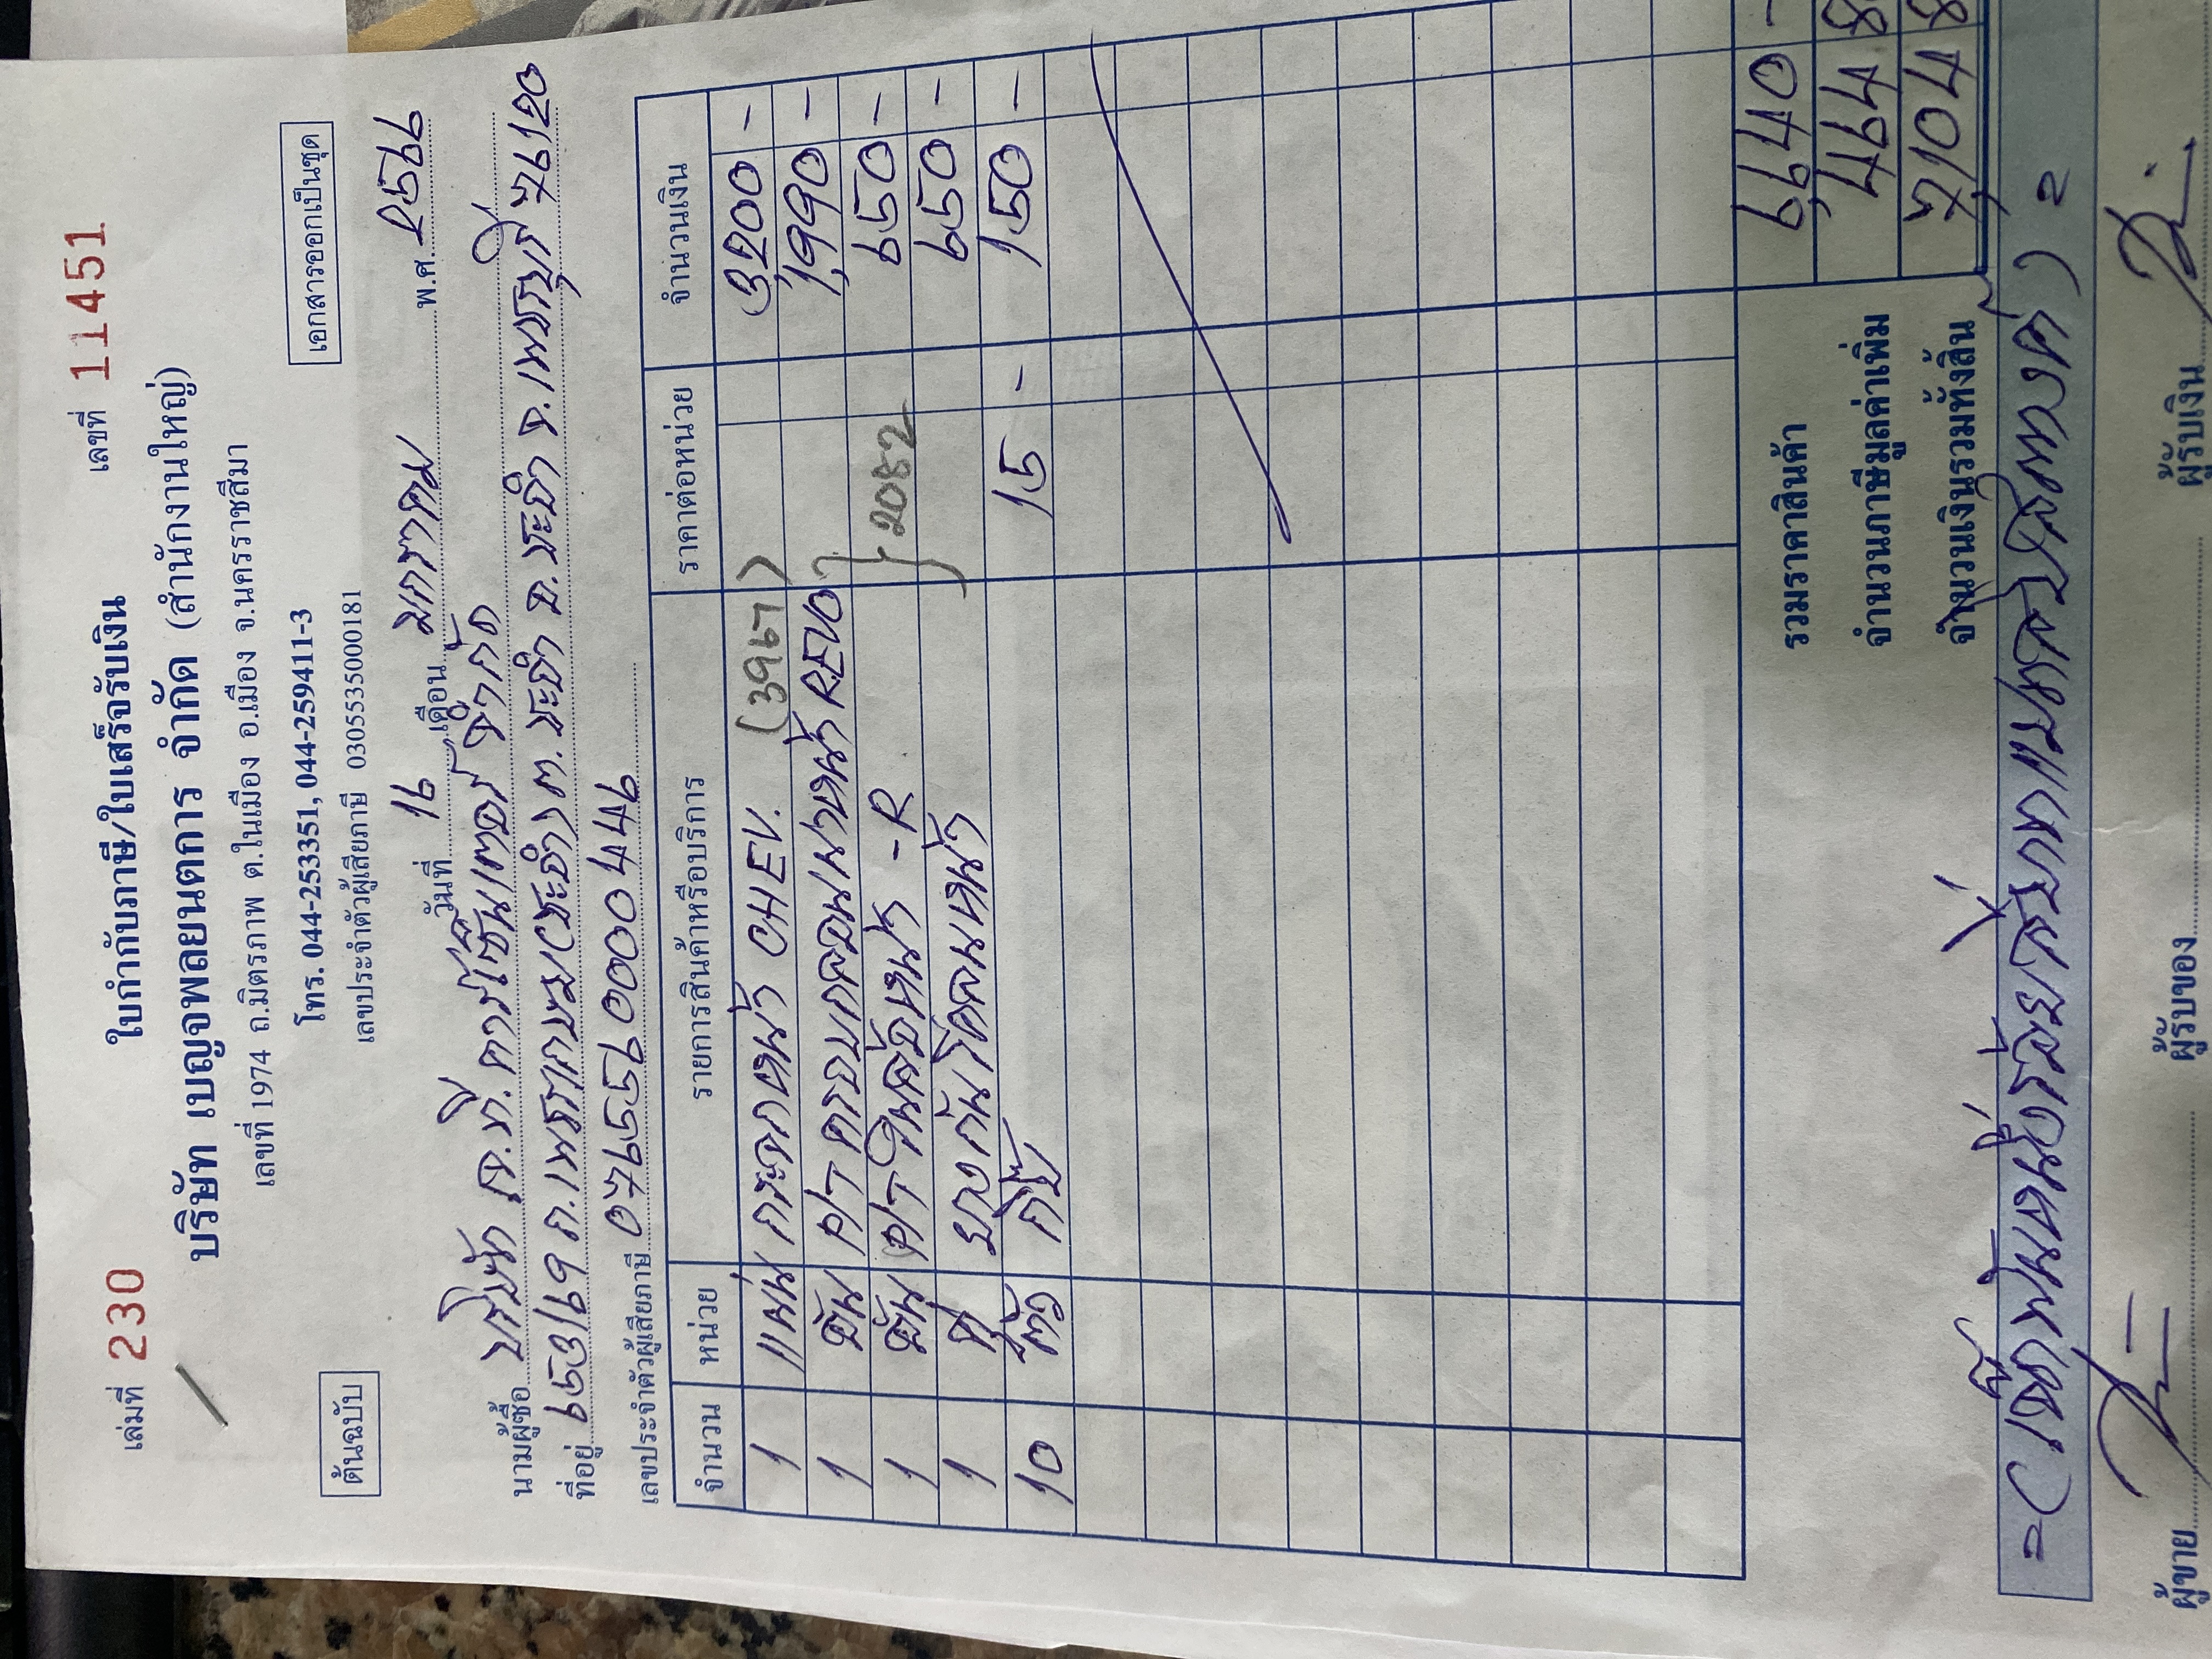 เล่มที่ 230 ใบกำกับภาษี/ใบเสร็จรับเงิน เลขที่ 11451
บริษัท เบญจพลยนตการ จำกัด (สำนักงานใหญ่)
เลขที่ 1974 ถ.มิตรภาพ ต.ในเมือง อ.เมือง จ.นครราชสีมา
ต้นฉบับ โทร. 044-253351, 044-259411-3 เอกสารออกเป็นชุด
เลขประจำตัวผู้เสียภาษี 0305535000181
วันที่ 16 เดือน มกราคม พ.ศ. 2566
นามผู้ซื้อ บริษัท ภ.ที.คาร์โซลูชั่นเตอร์ จำกัด
ที่อยู่ 653/69 ถ.เพชรเกษม(ชะอำ) ต.ชะอำ อ.ชะอำ จ.เพชรบุรี 76120
เลขประจำตัวผู้เสียภาษี 0765590000449
จำนวน หน่วย รายการสินค้าหรือบริการ ราคาต่อหน่วย จำนวนเงิน
1 แผ่น กระจกหน้า CHEV. (3967) 3,200 -
1 อัน ฝา ครอบกลอนฝาหน้า REVO 1,990 -
1 อัน หน้า -R } 2082 650 -
1 ยางกันโคลนหน้า 650 -
10 ตัว กิ๊บ 15 - 150 -
รวมราคาสินค้า 6,640 -
จำนวนภาษีมูลค่าเพิ่ม 464 8
จำนวนเงินรวมทั้งสิ้น 7,104 8
=(เจ็ดพันหนึ่งร้อยสี่บาทแปดสิบสตางค์)=
ผู้ขาย ผู้รับของ ผู้รับเงิน